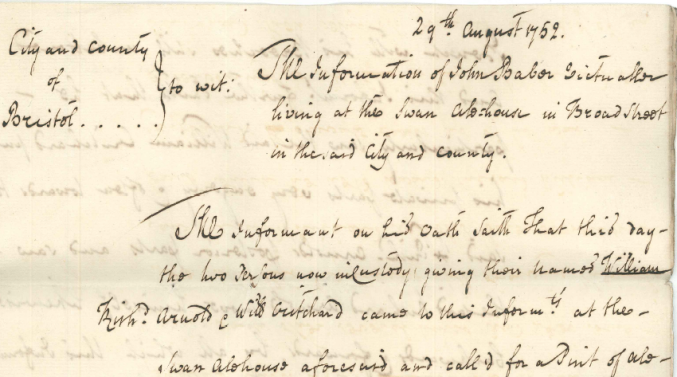 29th August 1752.
City and County
of
Bristol . . . . .
to wit:
The Information of John Baber Victualler
living at the Swan Alehouse in Broad Street
in the said City and County.
The Informant on his Oath saith That this day
the two Persons now in Custody giving their names William
Richd. Arnold & Willm Pritchard came to this Informts at the
Swan Alehouse aforesaid and call'd for a Pint of Ale